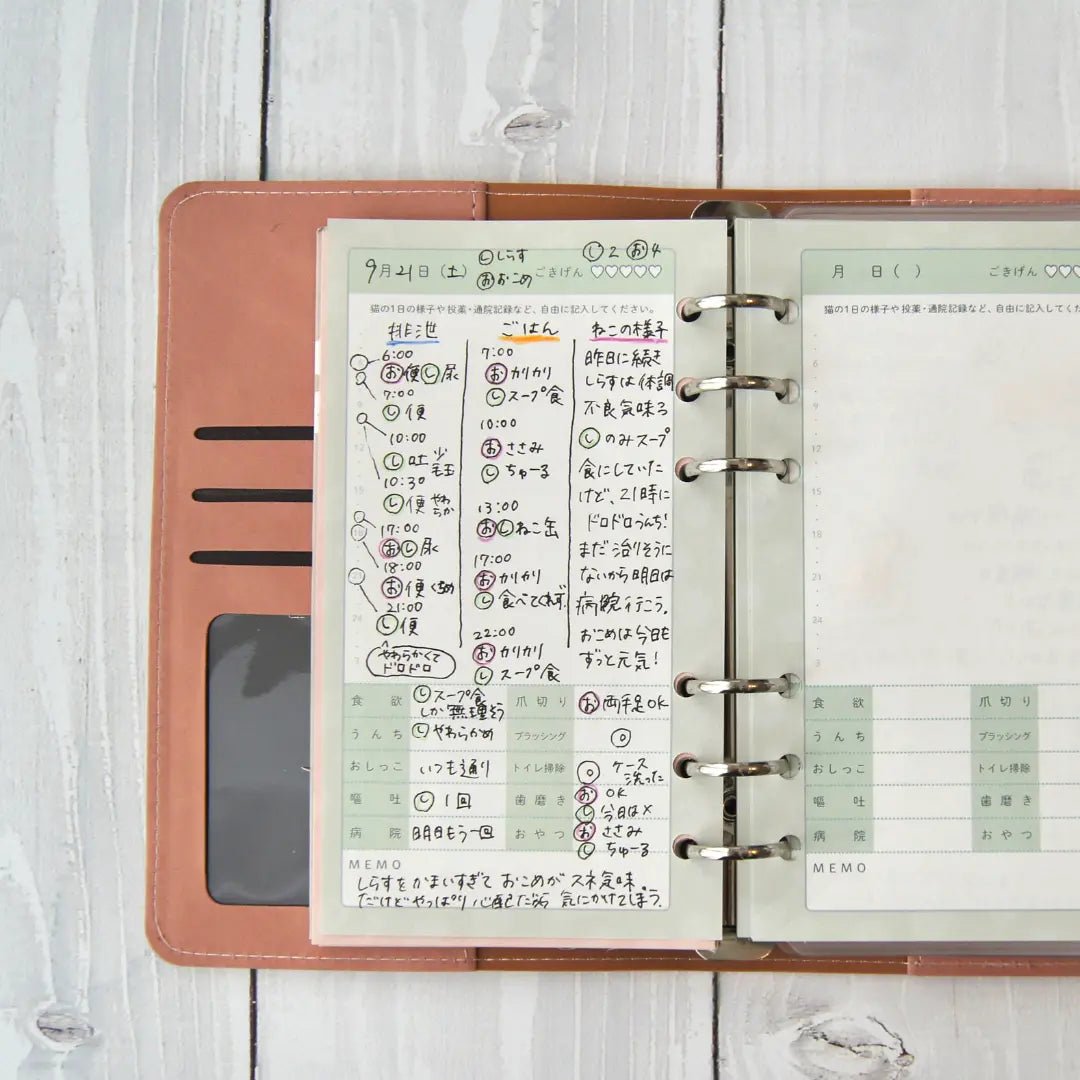 しらす し2 お4
9月21日(土) おおこめ ごきげん ♡♡♡♡♡
猫の1日の様子や投薬・通院記録など、自由に記入してください。
排泄
6:00
お便し尿
7:00
し便
10:00
し吐 少 毛玉
10:30
し便 やわらか
17:00
おし尿
18:00
お便 くちめ
21:00
し便
やわらかくて
ドロドロ
ごはん
7:00
おカリカリ
しスープ食
10:00
おささみ
しちゅーる
13:00
おしねこ缶
17:00
おカリカリ
し食べてくれず。
22:00
おカリカリ
しスープ食
ねこの様子
昨日に続き
しらすは体調
不良気味ろ
しのみスープ
食にしていた
けど、21時に
ドロドロうんち!
まだ治りそうに
ないから明日は
病院行こう。
おこめは今日も
ずっと元気!
6
9
12
15
18
21
24
3
食欲 しスープ食 しか無理そう 爪切り お両手足OK
うんち しやわらかめ ブラッシング ◎
おしっこ いつも通り トイレ掃除 ◎ ケース洗った
嘔吐 し1回 歯磨き おOK し今日は×
病院 明日もう一回 おやつ おささみ しちゅーる
MEMO
しらすをかまいすぎて おこめが スネ気味。
だけどやっぱり心配だから 気にかけてしまう。
月 日( ) ごきげん ♡♡♡
猫の1日の様子や投薬・通院記録など、自由に記入してくだ
6
9
12
15
18
21
24
3
食欲 爪切り
うんち ブラッシング
おしっこ トイレ掃除
嘔吐 歯磨き
病院 おやつ
MEMO